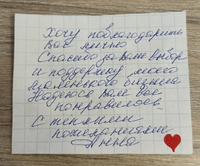 Хочу поблагодарить
Вас лично
Спасибо за Ваш выбор
и поддержку моего
маленького бизнеса
Надеюсь Вам всё
понравилось
С теплыми
пожеланиями
Анна